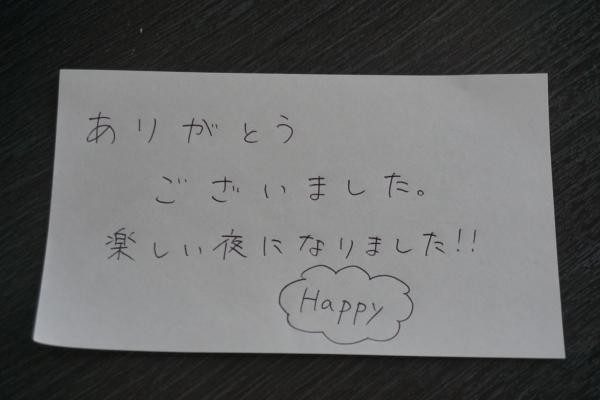 ありがとう
ございました。
楽しい夜になりました!!
Happy